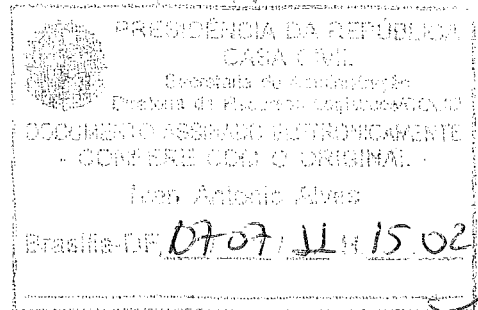 PRESIDÊNCIA DA REPÚBLICA
CASA CIVIL
Secretaria de Administração
Diretoria de Recursos Logísticos
DOCUMENTO ASSINADO ELETRONICAMENTE
- CONFERE COM O ORIGINAL -
Ivan Antonio Alves
Brasília-DF, 07 07 / 11 H 15 02